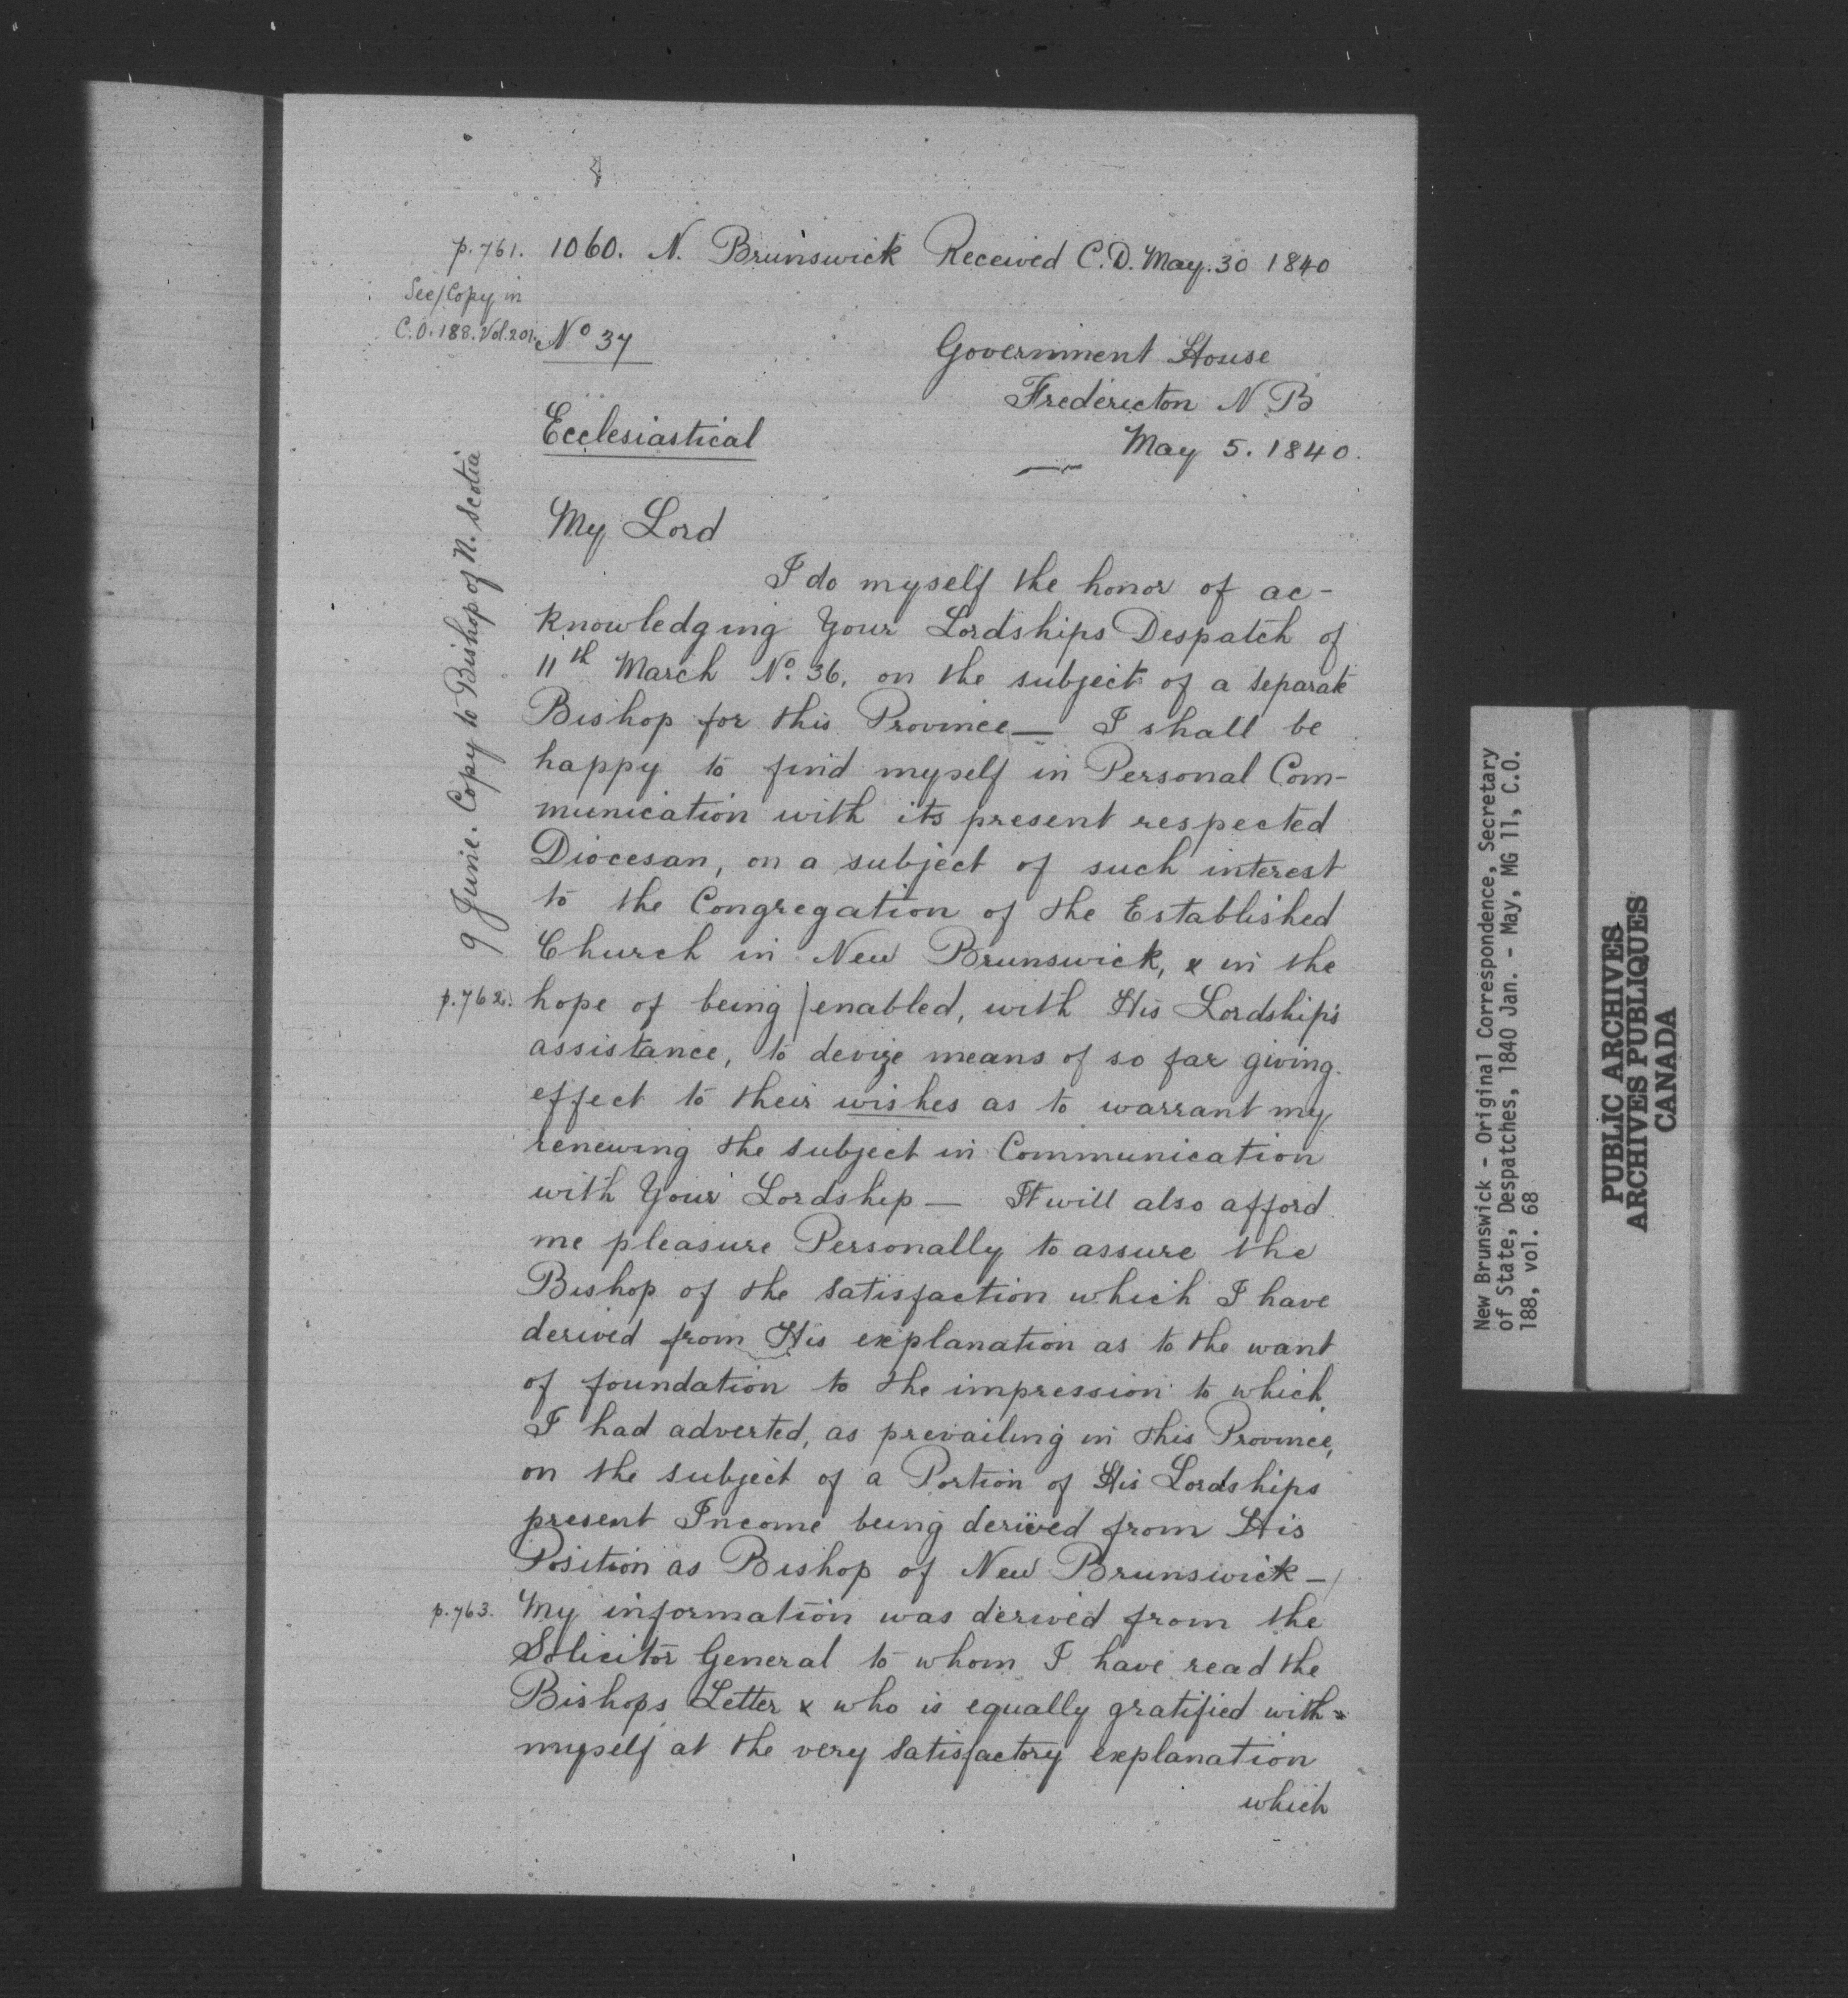 p.761. 1060. N. Brunswick Received C.D. May. 30 1840
See/Copy in
C.O.188.Vol.201. No 37
Government House
Fredericton N.B
Ecclesiastical
May 5. 1840.
9 June. Copy to Bishop of N. Scotia
My Lord
I do myself the honor of ac-
knowledging Your Lordships Despatch of
11th March No. 36, on the subject of a separate
Bishop for this Province — I shall be
happy to find myself in Personal Com-
munication with its present respected
Diocesan, on a subject of such interest
to the Congregation of the Established
Church in New Brunswick, & in the
p.762. hope of being | enabled, with His Lordship's
assistance, to devize means of so far giving
effect to their wishes as to warrant my
renewing the subject in Communication
with Your Lordship — It will also afford
me pleasure Personally to assure the
Bishop of the satisfaction which I have
derived from His explanation as to the want
of foundation to the impression to which
I had adverted, as prevailing in this Province,
on the subject of a Portion of His Lordships
present Income being derived from His
Position as Bishop of New Brunswick — /
p.763. My information was derived from the
Solicitor General to whom I have read the
Bishops Letter & who is equally gratified with
myself at the very satisfactory explanation
which
New Brunswick - Original Correspondence, Secretary
of State, Despatches, 1840 Jan. - May, MG 11, C.O.
188, vol. 68
PUBLIC ARCHIVES
ARCHIVES PUBLIQUES
CANADA